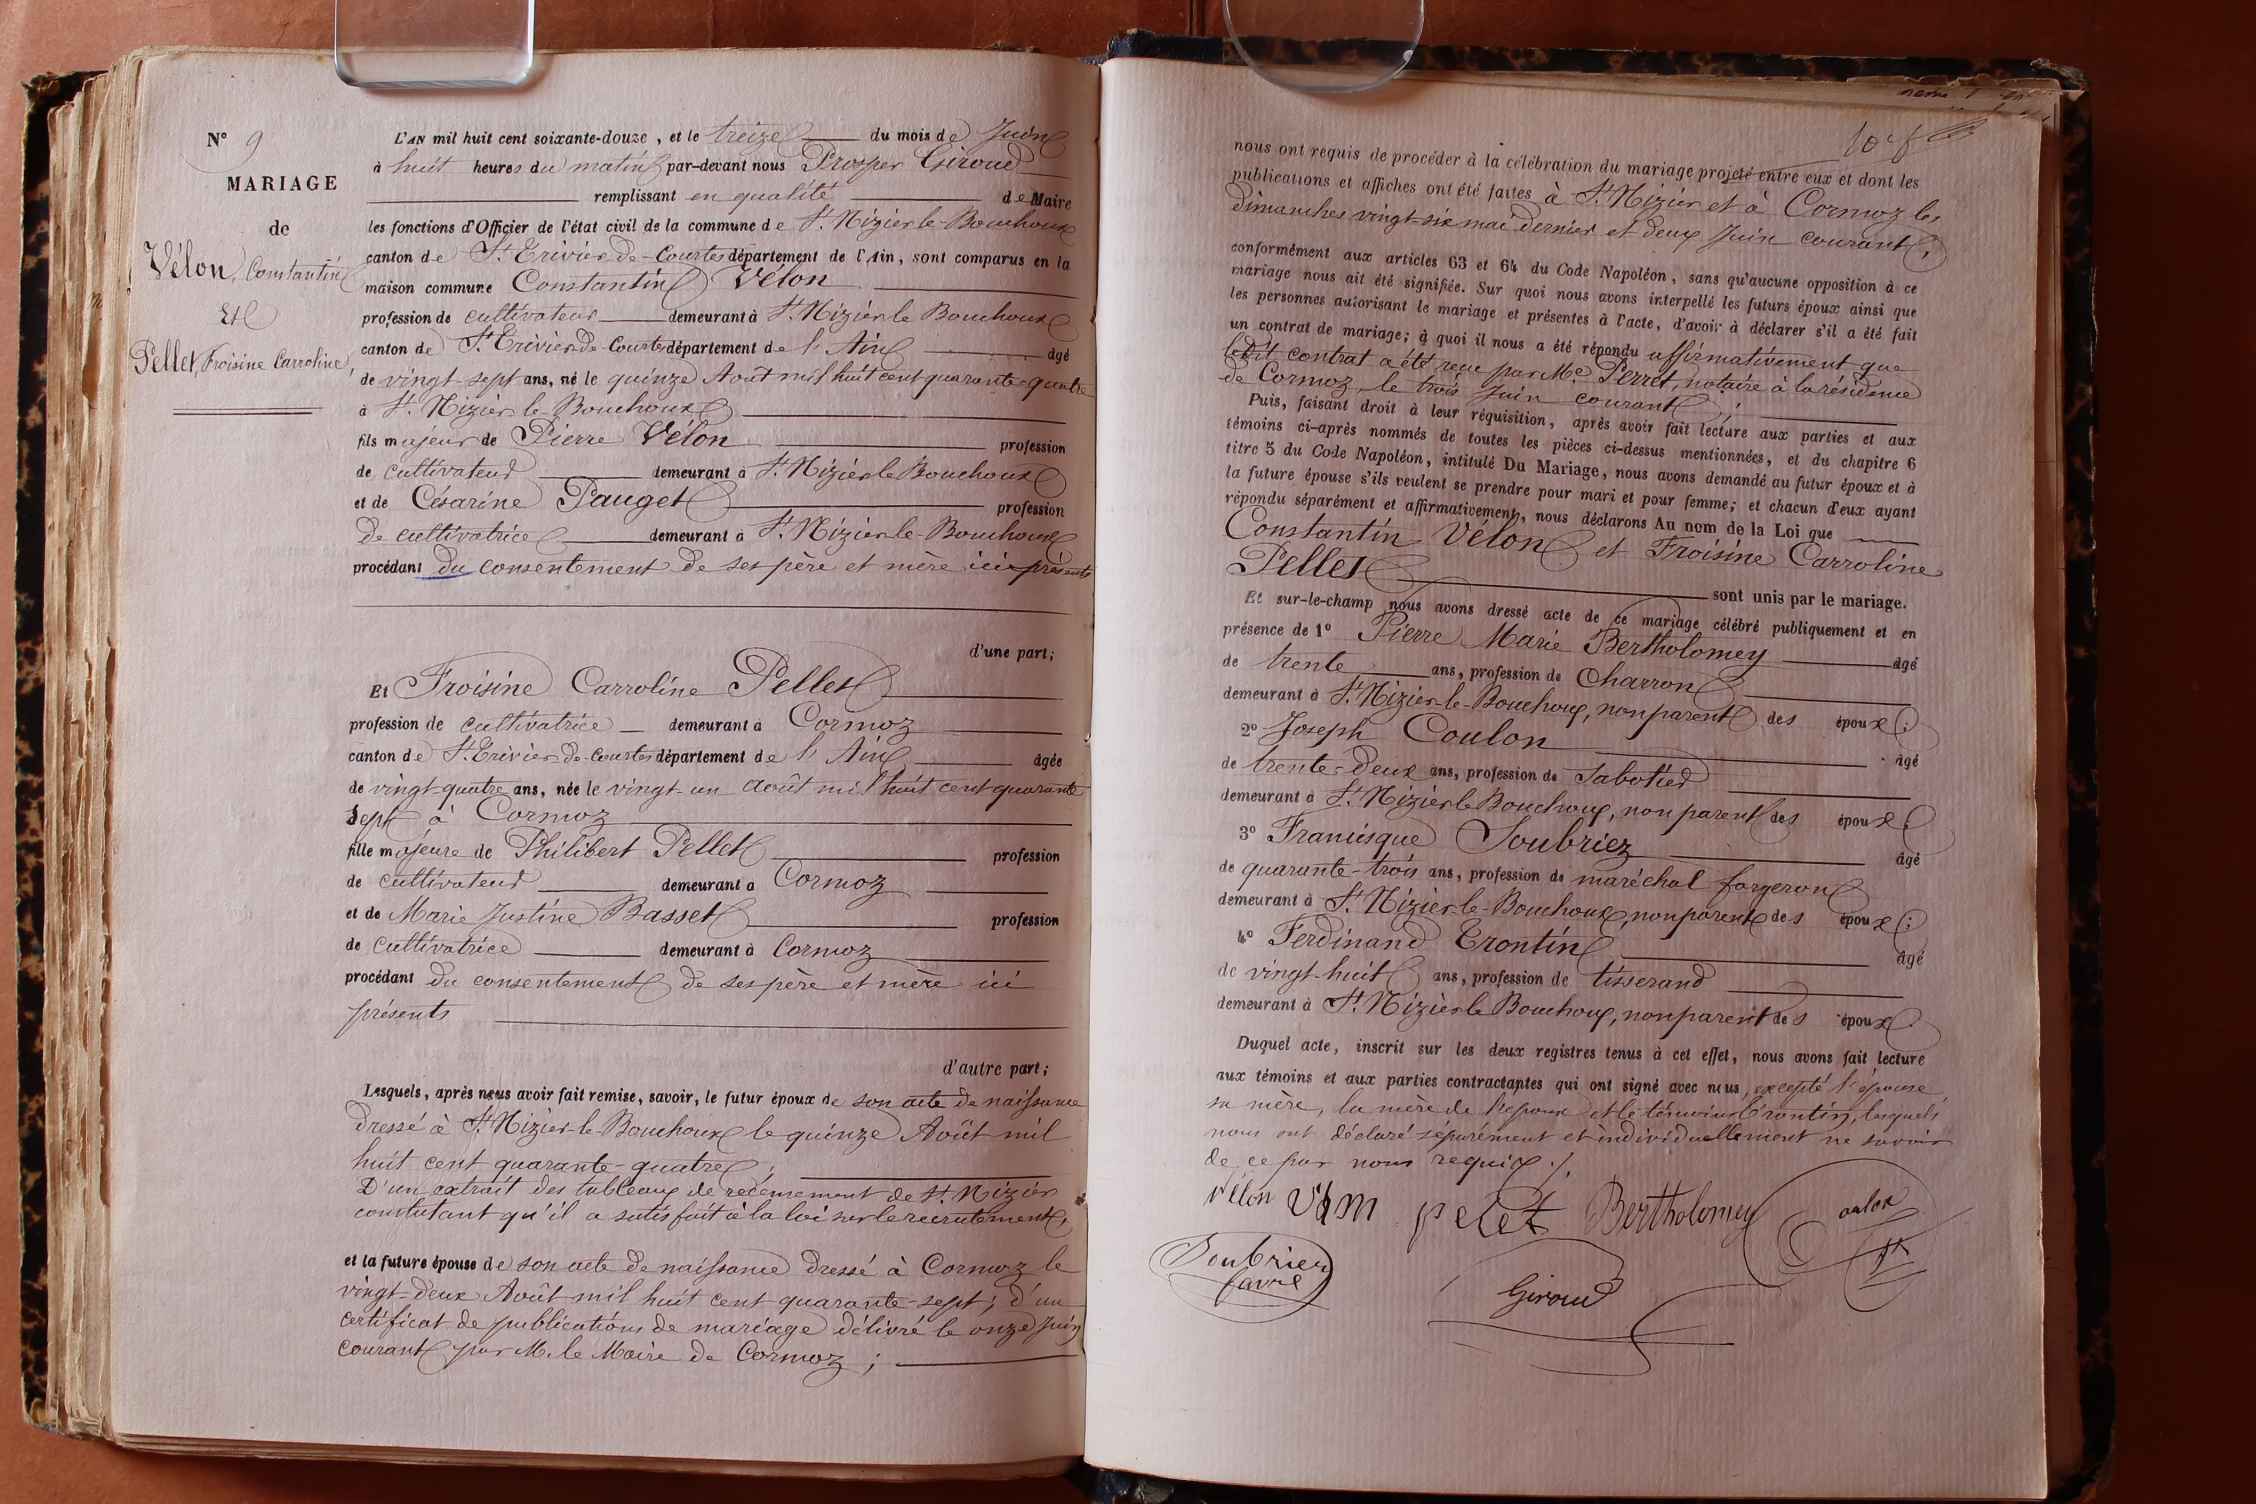 N° 9
MARIAGE
de
Vélon, Constantin
Et
Pellet, Froisine Carroline,
L'AN mil huit cent soixante-douze, et le treize du mois de Juin
à huit heures du matin par-devant nous Prosper Giroud
remplissant en qualité de Maire
les fonctions d'Officier de l'état civil de la commune de St. Nizier le-Bouchoux
canton de St. Trivier-de-Courtes département de l'Ain, sont comparus en la
maison commune Constantin Vélon
profession de cultivateur demeurant à St. Nizier le Bouchoux
canton de St. Trivier de Courtes département de l'Ain âgé
de vingt-sept ans, né le quinze Août mil huit cent quarante-quatre
à St. Nizier le Bouchoux
fils majeur de Pierre Vélon profession
de cultivateur demeurant à St. Nizier le Bouchoux
et de Césarine Pauget profession
de cultivatrice demeurant à St. Nizier-le-Bouchoux
procédant du consentement de ses père et mère ici présents
d'une part;
Et Froisine Carroline Pellet
profession de cultivatrice demeurant à Cormoz
canton de St. Trivier de Courtes département de l'Ain âgée
de vingt-quatre ans, née le vingt-un août mil huit cent quarante
sept à Cormoz
fille majeure de Philibert Pellet profession
de cultivateur demeurant à Cormoz
et de Marie Justine Basset profession
de cultivatrice demeurant à Cormoz
procédant du consentement de ses père et mère ici
présents
d'autre part;
Lesquels, après nous avoir fait remise, savoir, le futur époux de son acte de naissance
dressé à St. Nizier-le-Bouchoux le quinze Août mil
huit cent quarante-quatre;
D'un extrait des tableaux de recensement de St. Nizier
constatant qu'il a satisfait à la loi sur le recrutement,
et la future épouse de son acte de naissance dressé à Cormoz le
vingt-deux Août mil huit cent quarante-sept; d'un
certificat de publications de mariage délivré le onze Juin
courant par M. le Maire de Cormoz;
nous ont requis de procéder à la célébration du mariage projeté entre eux et dont les
publications et affiches ont été faites à St. Nizier et à Cormoz les
dimanches vingt-six mai dernier et deux Juin courant,
conformément aux articles 63 et 64 du Code Napoléon, sans qu'aucune opposition à ce
mariage nous ait été signifiée. Sur quoi nous avons interpellé les futurs époux ainsi que
les personnes autorisant le mariage et présentes à l'acte, d'avoir à déclarer s'il a été fait
un contrat de mariage; à quoi il nous a été répondu affirmativement que
ledit contrat a été reçu par Me. Perret, notaire à la résidence
de Cormoz le trois Juin courant;
Puis, faisant droit à leur réquisition, après avoir fait lecture aux parties et aux
témoins ci-après nommés de toutes les pièces ci-dessus mentionnées, et du chapitre 6
titre 5 du Code Napoléon, intitulé Du Mariage, nous avons demandé au futur époux et à
la future épouse s'ils veulent se prendre pour mari et pour femme; et chacun d'eux ayant
répondu séparément et affirmativement, nous déclarons Au nom de la Loi que
Constantin Vélon et Froisine Carroline
Pellet
sont unis par le mariage.
Et sur-le-champ nous avons dressé acte de ce mariage célébré publiquement et en
présence de 1° Pierre Marie Bertholomey âgé
de trente ans, profession de Charron
demeurant à St. Nizier-le-Bouchoux, non parent des époux;
2° Joseph Coulon âgé
de trente-deux ans, profession de Sabotier
demeurant à St. Nizier le Bouchoux, non parent des époux;
3° Francisque Soubriez âgé
de quarante-trois ans, profession de maréchal forgeron
demeurant à St. Nizier-le-Bouchoux, non parent des époux;
4° Ferdinand Trontin âgé
de vingt-huit ans, profession de tisserand
demeurant à St. Nizier le Bouchoux, non parent des époux
Duquel acte, inscrit sur les deux registres tenus à cet effet, nous avons fait lecture
aux témoins et aux parties contractantes qui ont signé avec nous, excepté l'épouse
sa mère, la mère de l'époux et le témoin Trontin, lesquels
nous ont déclaré séparément et individuellement ne savoir
de ce par nous requis ./.
vélon pelet Bertholomey Coulon
Soubrier
favre
Giroud